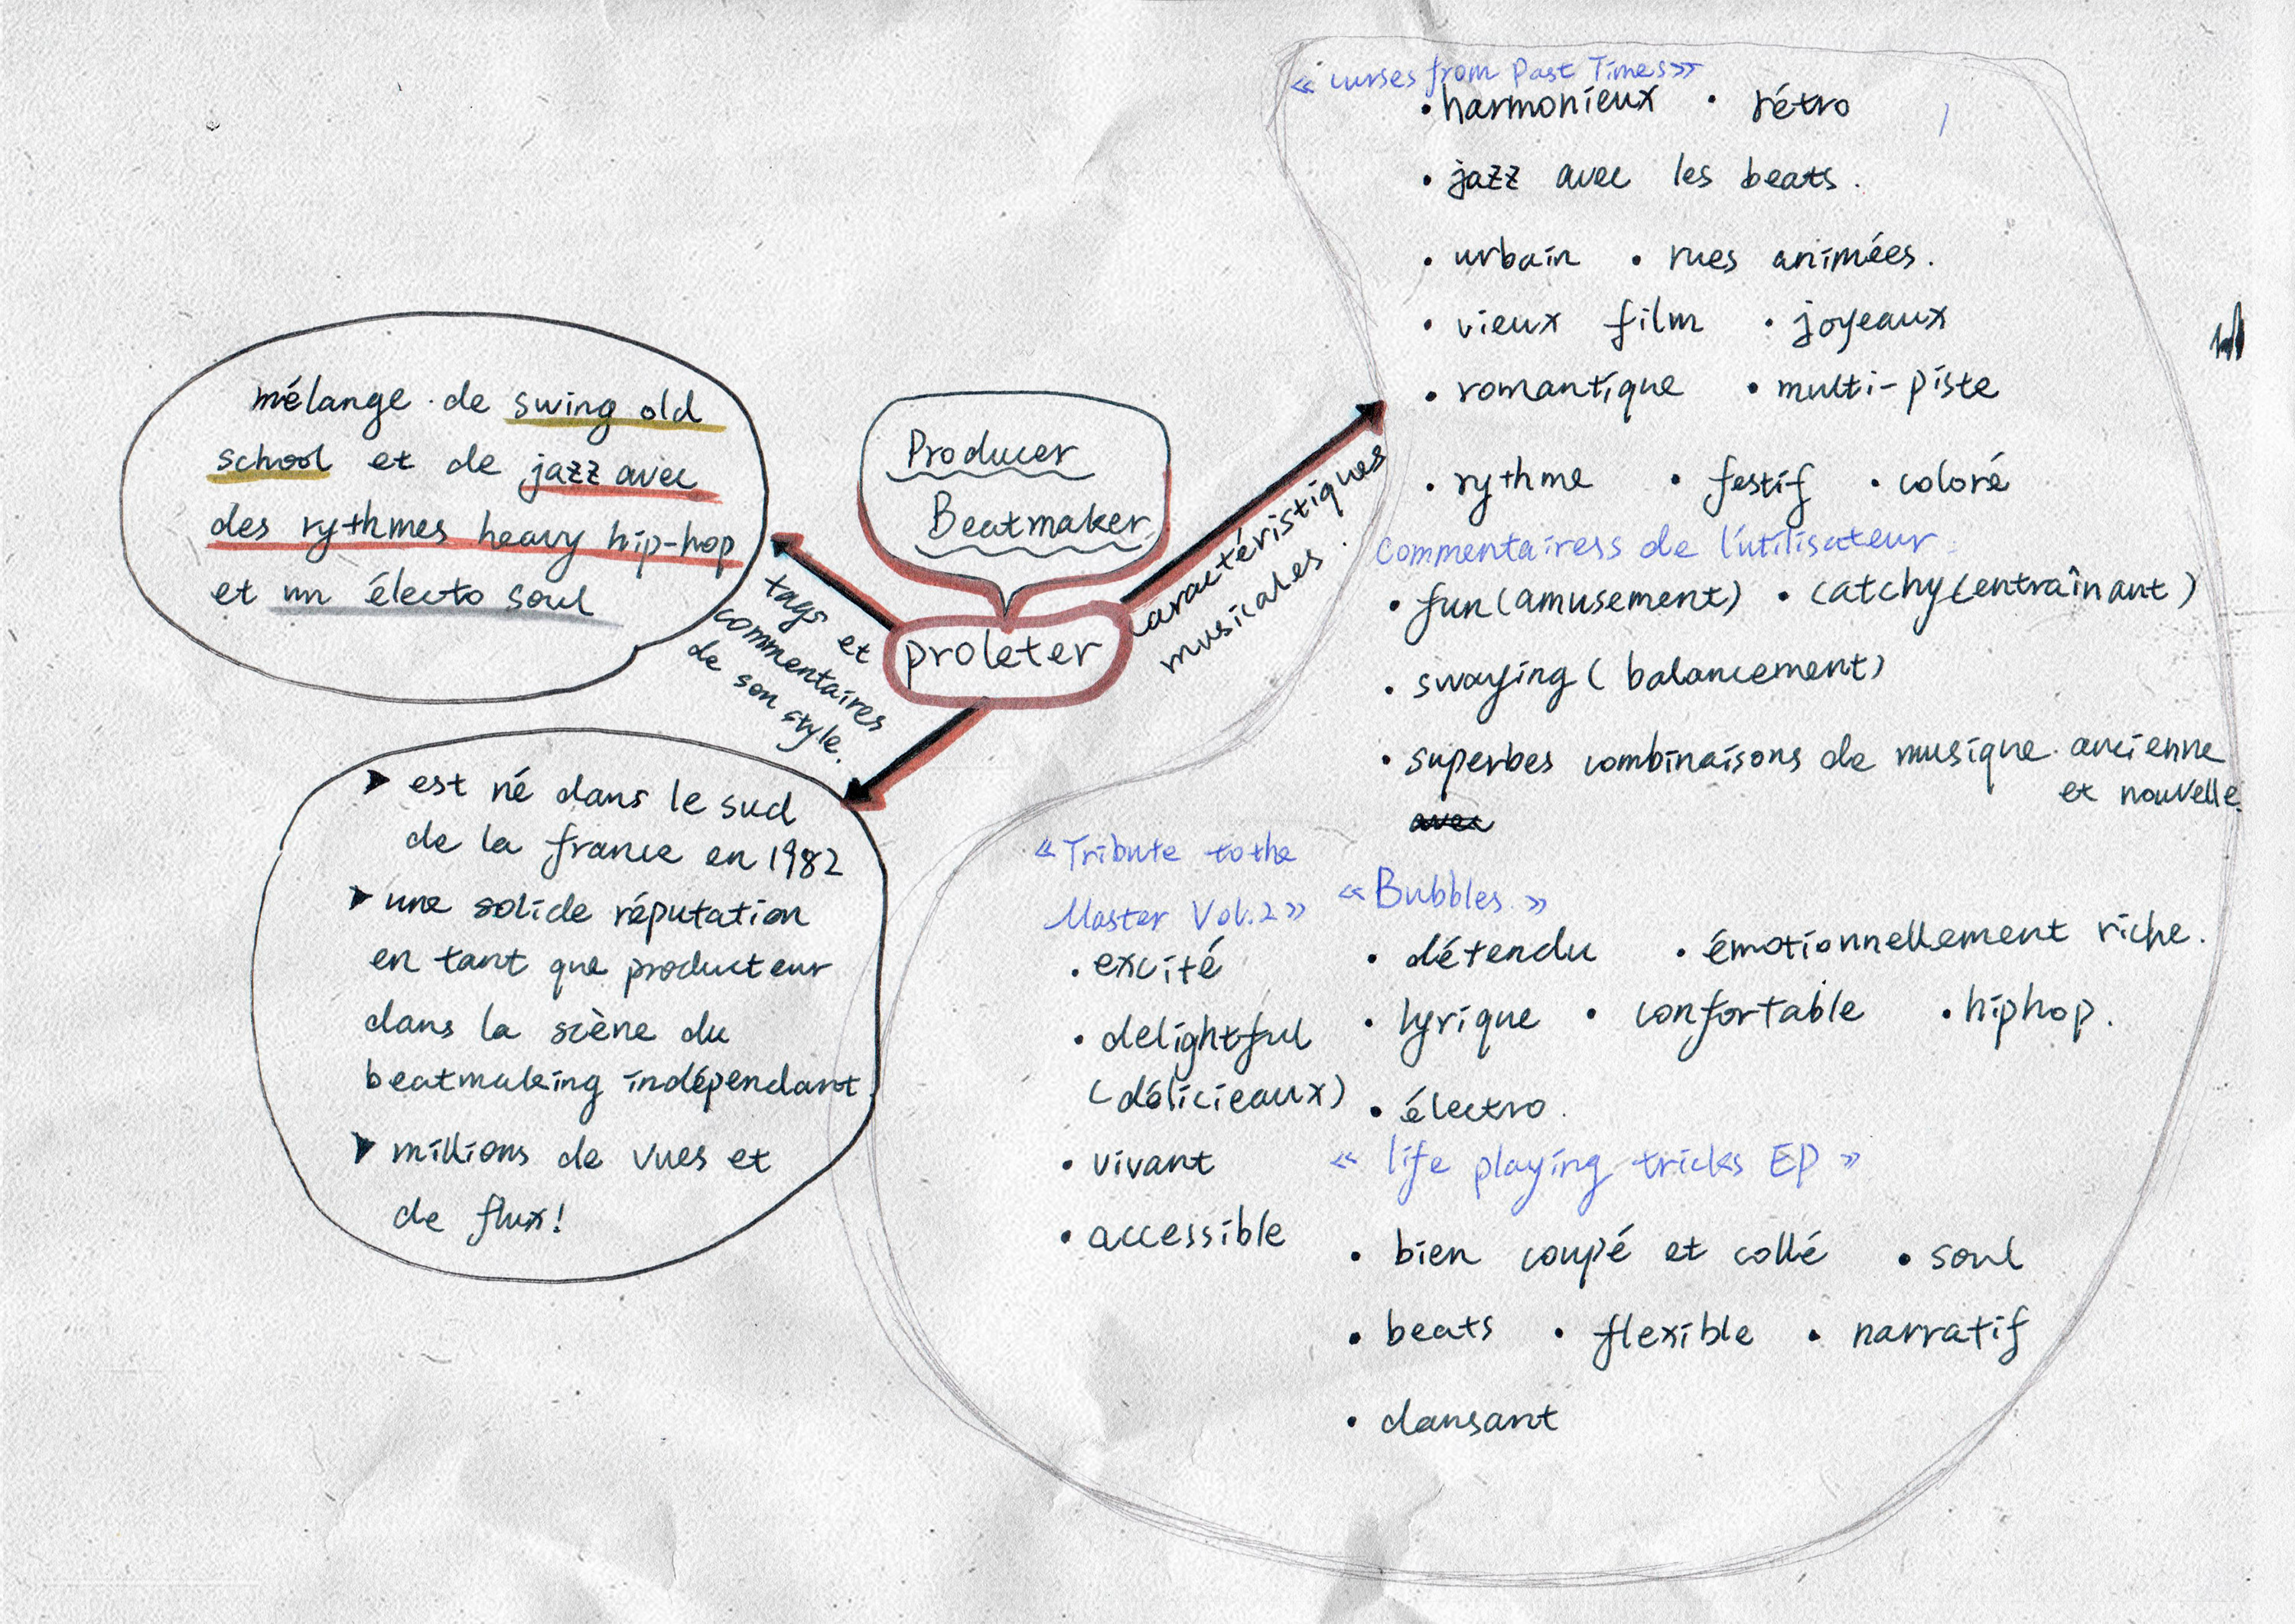 mélange de swing old
school et de jazz avec
des rythmes heavy hip-hop
et un électo soul
Producer
Beatmaker
proleter
tags et
commentaires
de son style.
caractéristiques
musicales.
➤ est né dans le sud
de la france en 1982
➤ une solide réputation
en tant que producteur
dans la scène du
beatmaking indépendant
➤ millions de vues et
de flux!
« curses from Past Times »
• harmonieux • rétro
• jazz avec les beats.
• urbain • rues animées.
• vieux film • joyeaux
• romantique • multi-piste
• rythme • festif • coloré
commentairess de l'utilisateur:
• fun (amusement) • catchy (entraînant)
• swaying ( balancement)
• superbes combinaisons de musique ancienne
et nouvelle.
avec
« Tribute to the
Master Vol.2 »
• excité
• delightful
(délicieaux)
• vivant
• accessible
« Bubbles. »
• détendu • émotionnellement riche.
• lyrique • confortable • hiphop.
• électro.
« life playing tricks EP »
• bien coupé et collé • soul
• beats • flexible • narratif
• dansant